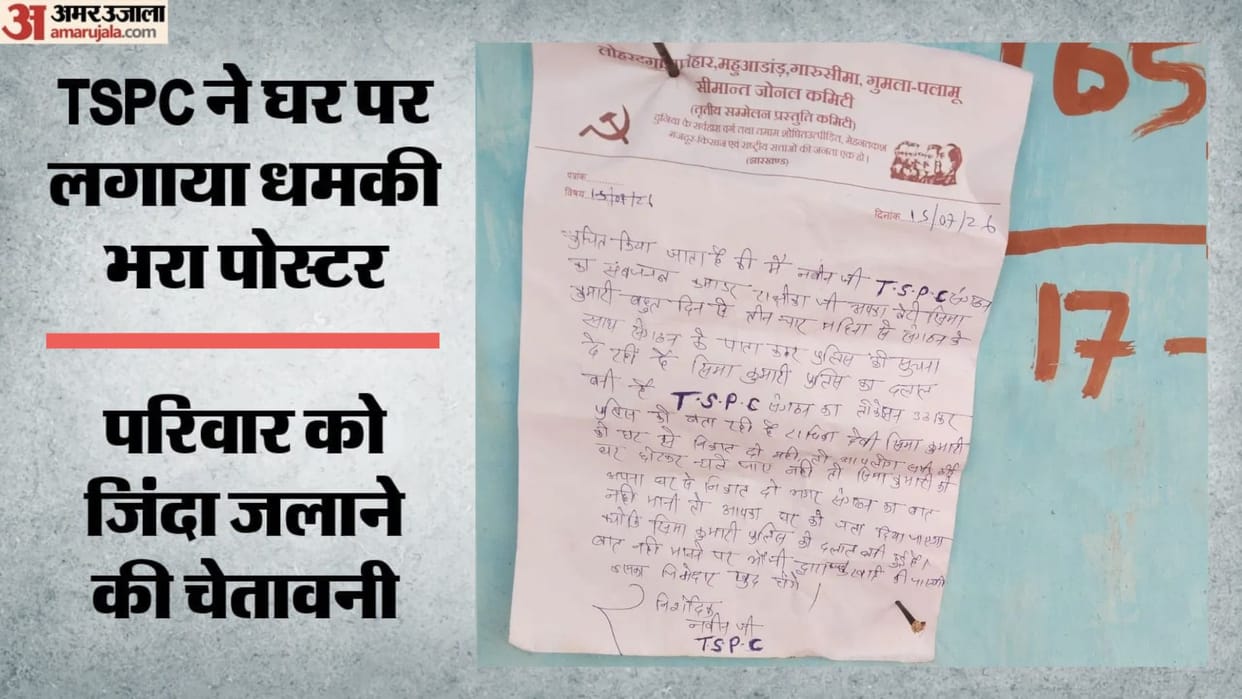 अमर उजाला
amarujala.com
TSPC ने घर पर
लगाया धमकी
भरा पोस्टर
परिवार को
जिंदा जलाने
की चेतावनी
महुआडांड़,गारुसीमा, गुमला-पलामू
सीमान्त जोनल कमिटी
(तृतीय सम्मेलन प्रस्तुति कमिटी)
दुनिया के सर्वहारा वर्ग तथा तमाम शोषित उत्पीड़ित, मेहनतकश
मजदूर-किसान एवं राष्ट्रीय सत्ताओं की जनता एक हो।
(झारखण्ड)
पत्रांक
विषय 15/07/26
दिनांक 15/07/26
सुचित किया जाता है की मैं नवीन जी T.S.P.C संगठन
का कमांडर जी आपका बेटी
कुमारी बहुत दिन से तीन चार महिना से संगठन के
साथ संगठन के पाता कर पुलिस को सुचना
दे रही है कुमारी पुलिस का दलाल
बनी है T.S.P.C संगठन का लोकेशन
पुलिस को बता रही है देवी कुमारी
को घर से निकाल दो नहीं तो आपलोग
घर छोड़कर चले जाए नहीं तो कुमारी को
अपना घर से निकाल दो अगर संगठन का बात
नहीं मानी तो आपका घर को जला दिया जाएगा
क्योंकि कुमारी पुलिस की दलाल बनी हुई है।
बात नहीं मानने पर की जाएगी
जिसका जिमेदार खुद होंगे
नवीन जी
T.S.P.C
165
17-